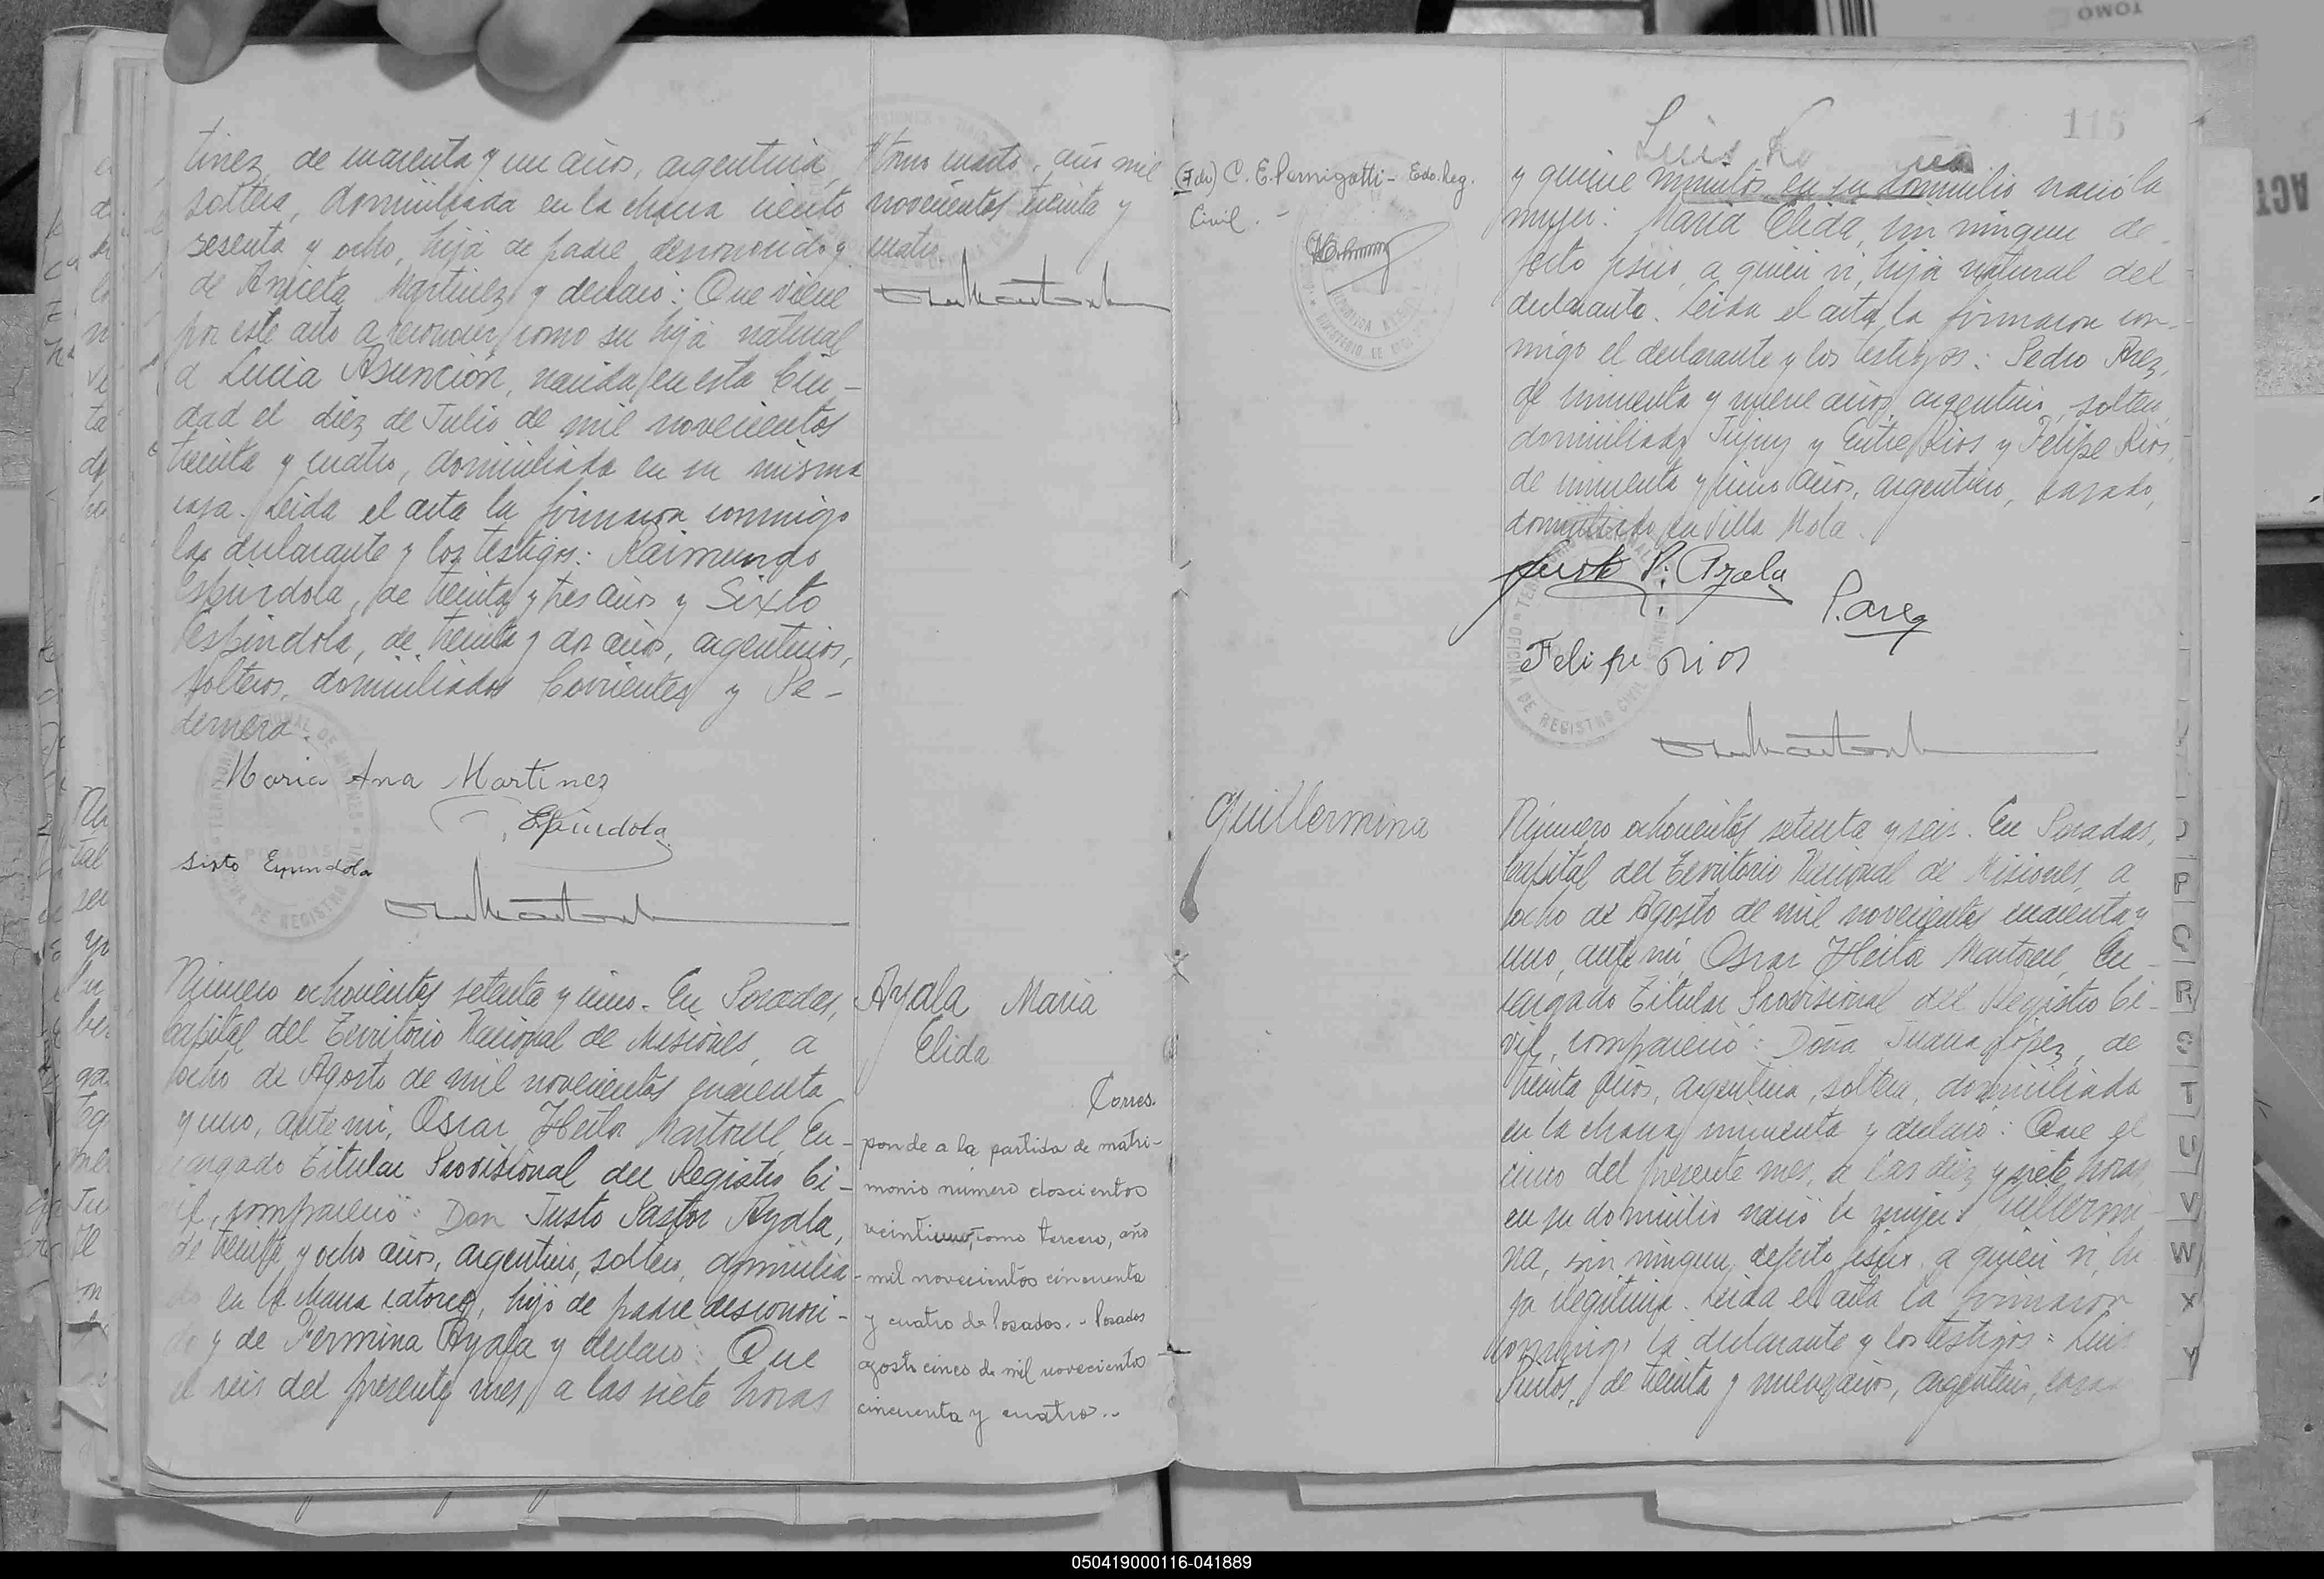 tinez, de cuarenta y un años, argentina,
soltera, domiciliada en la chacra ciento
sesenta y ocho, hija de padre desconocido y
de Aniceta Martinez y declaró: Que viene
por este acto a reconocer como su hija natural
a Lucia Asunción, nacida en esta Ciu-
dad el diez de Julio de mil novecientos
treinta y cuatro, domiciliada en su misma
casa. Leida el acta la firmaron conmigo
la declarante y los testigos: Raimundo
Espindola, de treinta y tres años y Sixto
Espindola, de treinta y dos años, argentinos,
solteros, domiciliados Corrientes y Pe-
dernera.
Maria Ana Martinez
Espindola
Sixto Espindola
tomo cuarto, año mil
novecientos treinta y
cuatro.
Número ochocientos setenta y cinco. En Posadas,
Capital del Territorio Nacional de Misiones, a
ocho de Agosto de mil novecientos cuarenta
y uno, ante mi, Oscar Heitor Martorell, En-
cargado Titular Provisional del Registro Ci-
vil, compareció: Don Justo Pastor Ayala,
de treinta y ocho años, argentino, soltero, domicilia-
do en la chacra catorce, hijo de padre desconoci-
do y de Fermina Ayala y declaró: Que
el seis del presente mes, a las siete horas
Ayala Maria
Elida
Corres-
ponde a la partida de matri-
monio número doscientos
veintiuno, tomo tercero, año
mil novecientos cincuenta
y cuatro de Posadas.- Posados
agosto cinco de mil novecientos
cincuenta y cuatro..
(Fdo) C. E. Pernigotti - Edo. Reg.
Civil.-
115
Luis
y quince minutos, en su domicilio nació la
mujer: Maria Elida, sin ningun de-
fecto fisico, a quien vi, hija natural del
declarante. Leida el acta la firmaron con-
migo el declarante y los testigos: Pedro Arez,
de cincuenta y nueve años, argentino, soltero,
domiciliado Jujuy y Entre Rios y Felipe Rios,
de cincuenta y cinco años, argentino, casado,
domiciliado en Villa Mola.
Justo P. Ayala
P. Arez
Felipe Rios
Guillermina
Número ochocientos setenta y seis. En Posadas,
Capital del Territorio Nacional de Misiones, a
ocho de Agosto de mil novecientos cuarenta y
uno, ante mi, Oscar Heitor Martorell, En-
cargado Titular Provisional del Registro Ci-
vil, compareció: Doña Juana López, de
treinta años, argentina, soltera, domiciliada
en la chacra cincuenta y declaró: Que el
cinco del presente mes, a las diez y siete horas,
en su domicilio nació la mujer: Guillermi-
na, sin ningun defecto fisico, a quien vi, hi-
ja ilegitima. Leida el acta la firmaron
conmigo la declarante y los testigos: Luis
Pintos, de treinta y nueve años, argentino, casa
P
Q
R
S
T
U
V
W
X
Y
TOMO
050419000116-041889